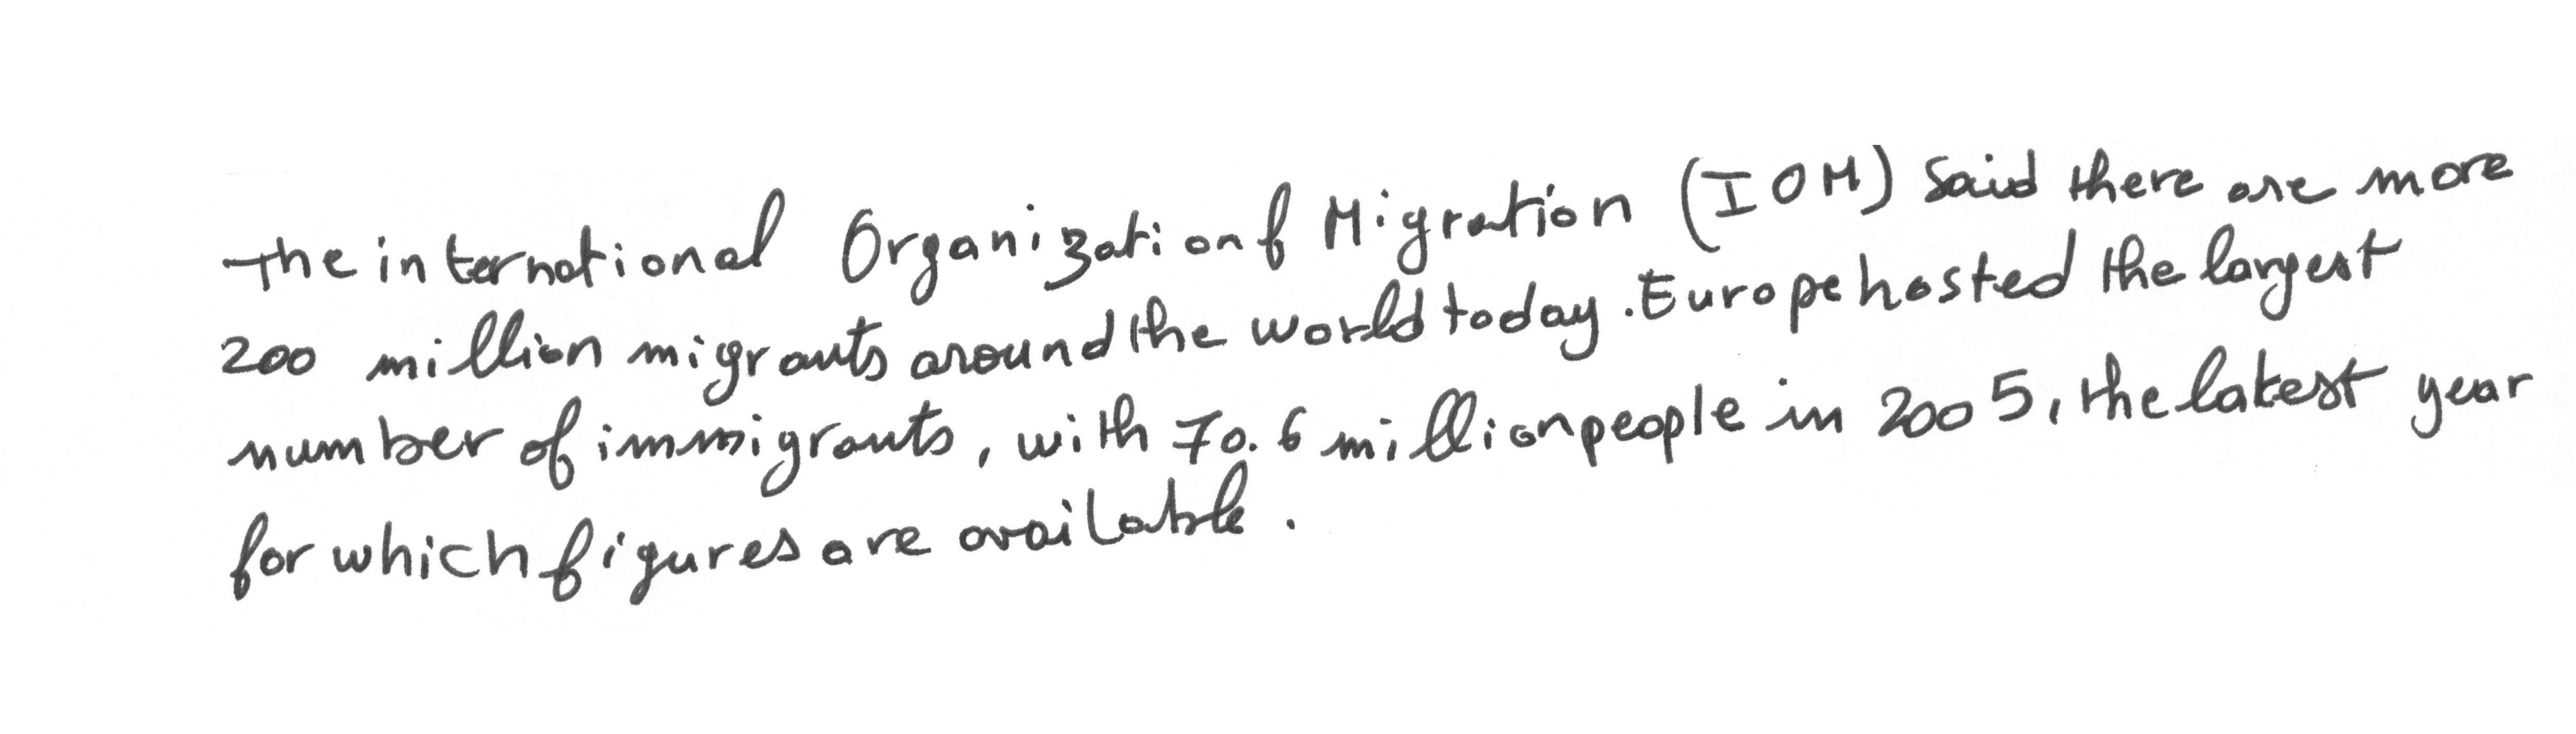 The international Organization of Migration (IOM) said there are more
200 million migrants around the world today. Europe hosted the largest
number of immigrants, with 70.6 million people in 2005, the latest year
for which figures are available.